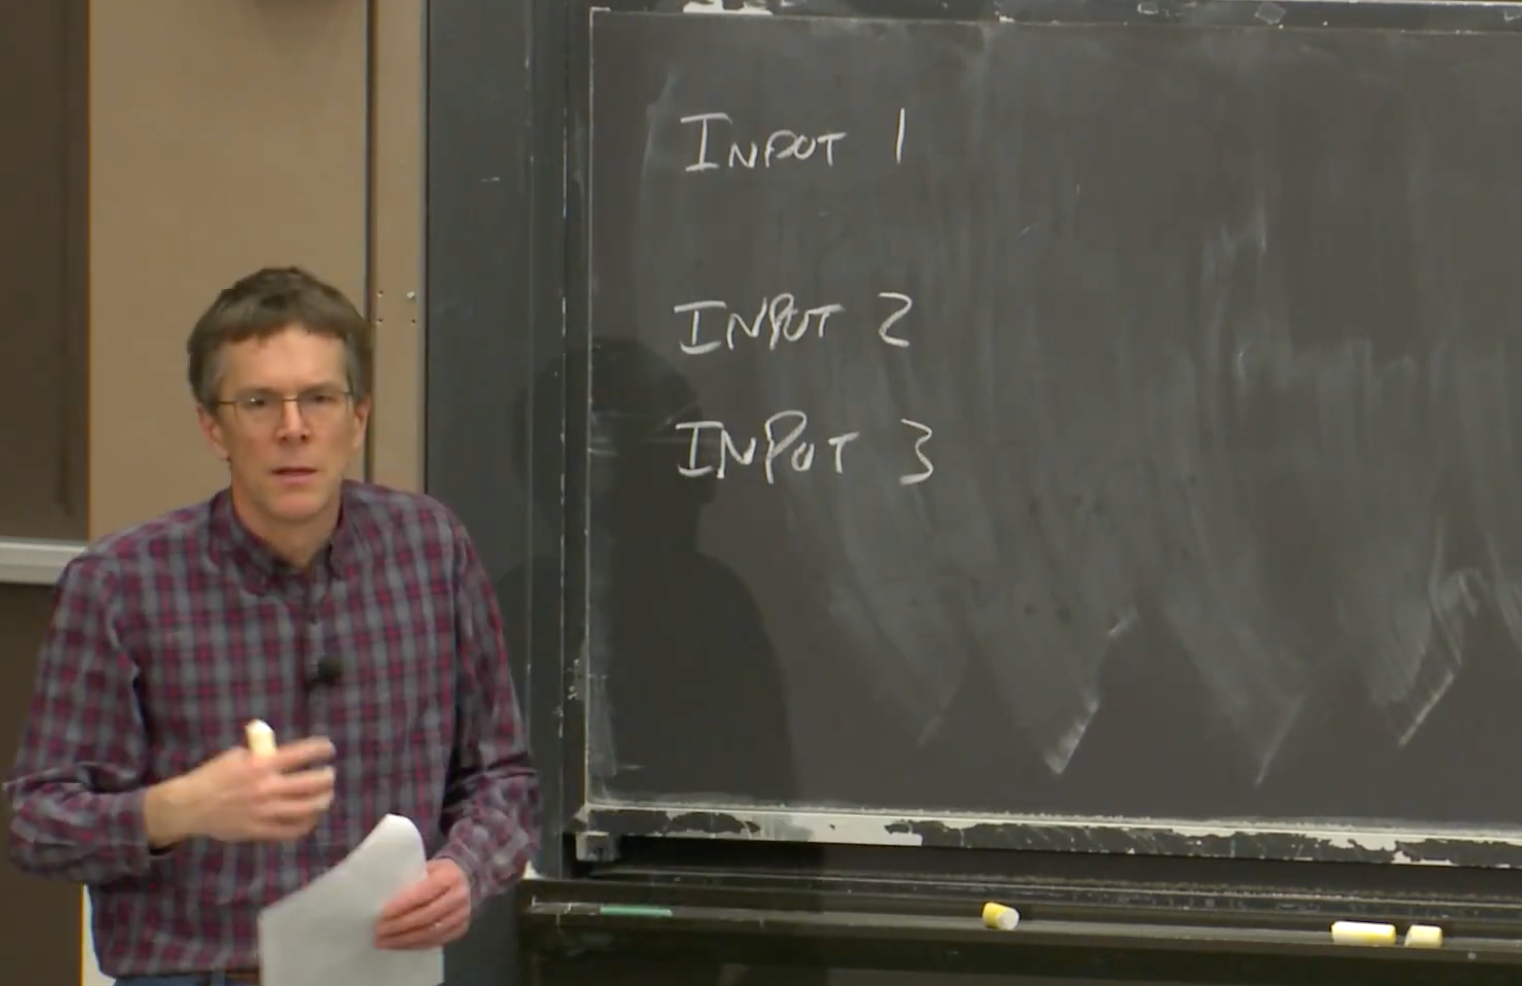 INPUT 1
INPUT 2
INPUT 3